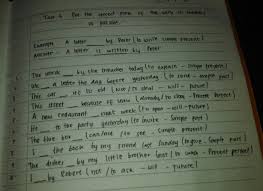 Task 4 Put the correct form of the verb in brackets
in passive.
Example A letter by Peter (to write simple present)
Answer A letter is written by Peter
The words by the teacher today (to explain - simple present)
We a letter the day before yesterday (to send - simple past)
This car. (not / to - will - future)
This street because of snow (already / to close - Present
A new restaurant next week (to open - will - future)
He to the party yesterday (to invite - Simple past)
The blue box (can / not / to - simple present)
I the book by my friend last Sunday (to give - Simple past)
The dishes by my little brother (not / to wash - Present perfect)
I by Robert (not / to ask - will - future)